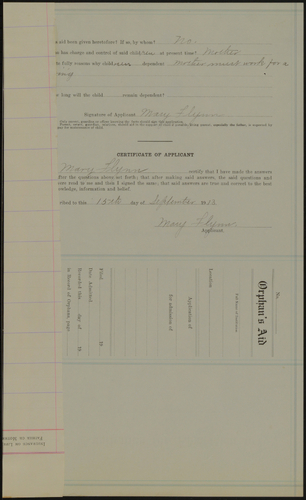 s aid been given heretofore? If so, by whom? No.
as has charge and control of said child ren at present time? Mother
te fully reasons why child ren dependent mother must work for a
ving
w long will the child remain dependent?
Signature of Applicant Mary Flynn
CERTIFICATE OF APPLICANT
Mary Flynn certify that I have made the answers
that the questions along set forth; that after making said answers, the said questions and
were read to me and then I signed the same; that said answers are true and correct to the best
knowledge, information and belief.
ribed to this 15th day of September 1913
Mary Flynn
Applicant
No.
Orphan's Aid
Full Name of Institution
Location
Application of
for admission of
Filed 19
Date Admitted
Recorded this day of 19
in Record of Orphans, page